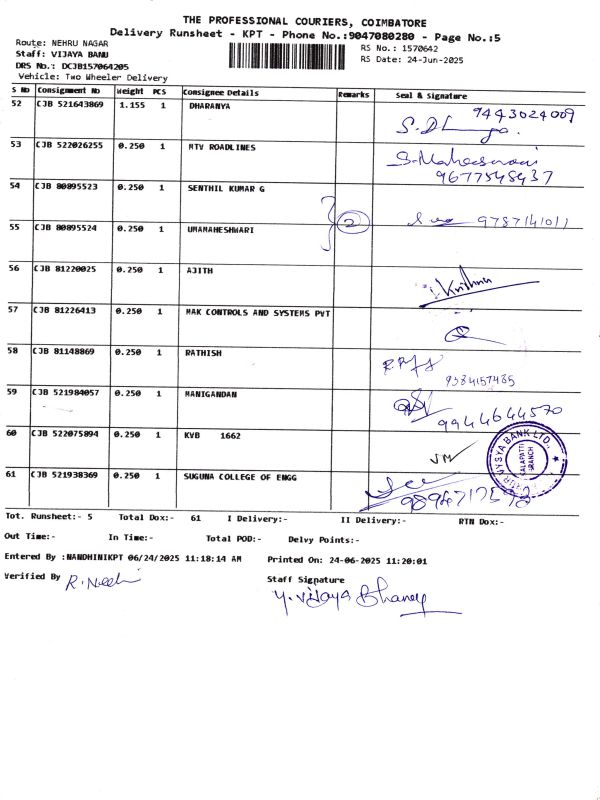 THE PROFESSIONAL COURIERS, COIMBATORE
Delivery Runsheet - KPT - Phone No.:9047080280 - Page No.:5
Route: NEHRU NAGAR
RS No.: 1570642
Staff: VIJAYA BANU
RS Date: 24-Jun-2025
DRS No.: DCJB157064205
Vehicle: Two Wheeler Delivery
S No Consignment No Weight PCS Consignee Details Remarks Seal & Signature
52 CJB 521643869 1.155 1 DHARANYA 9443024009
53 CJB 522026255 0.250 1 MTV ROADLINES S. Maheeswari
9677548437
54 CJB 80895523 0.250 1 SENTHIL KUMAR G
2 9787141011
55 CJB 80895524 0.250 1 UMAMAHESHWARI
56 CJB 81220025 0.250 1 AJITH Krishna
57 CJB 81226413 0.250 1 MAK CONTROLS AND SYSTEMS PVT
58 CJB 81148869 0.250 1 RATHISH
9384157485
59 CJB 521984057 0.250 1 MANIGANDAN
9944644570
60 CJB 522075894 0.250 1 KVB 1662
KARUR VYSYA BANK LTD.
KALAPATTI
BRANCH
61 CJB 521938369 0.250 1 SUGUNA COLLEGE OF ENGG
Tot. Runsheet:- 5 Total Dox:- 61 I Delivery:- II Delivery:- RTN Dox:-
Out Time:- In Time:- Total POD:- Delvy Points:-
Entered By :NANDHINIKPT 06/24/2025 11:18:14 AM Printed On: 24-06-2025 11:20:01
Verified By
Staff Signature
Y. Vijaya Bhanu